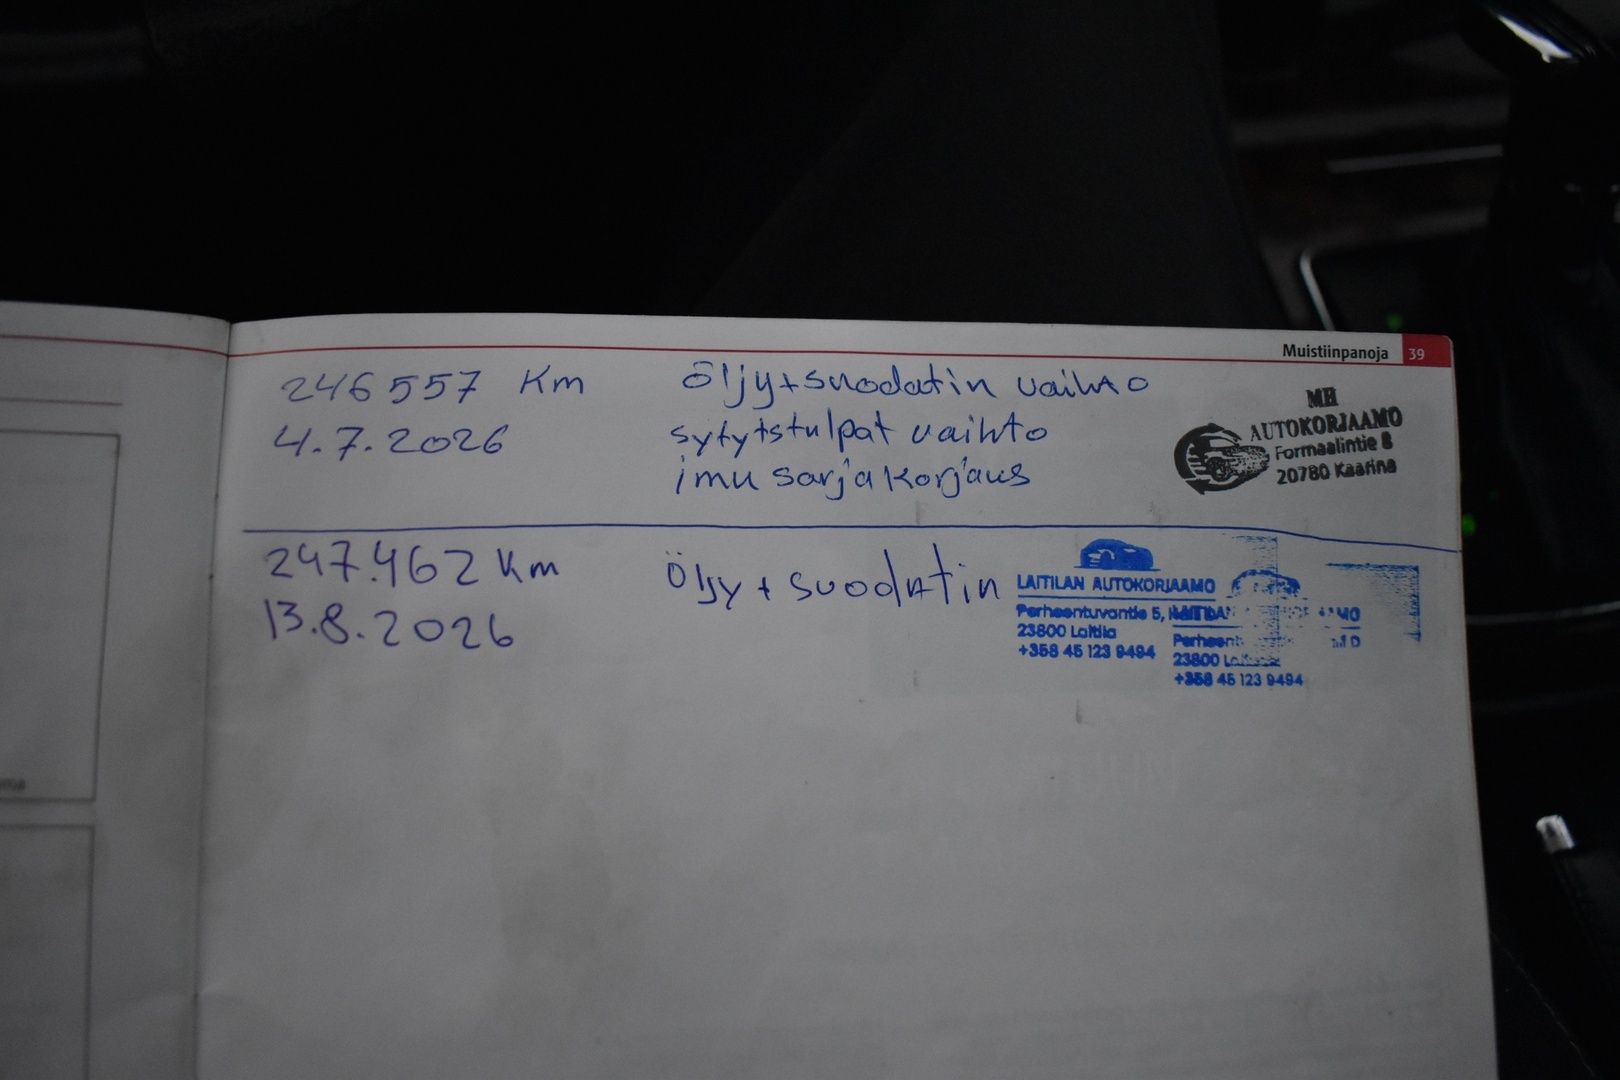 Muistiinpanoja 39
246557 Km Öljy+suodatin vaihto
4.7.2026 sytytstulpat vaihto
imu sarja korjaus
MH
AUTOKORJAAMO
Formaalintie 8
20780 Kaarina
247.462 Km Öljy + suodatin
13.8.2026
LAITILAN AUTOKORJAAMO
Perheentuvantie 5,
23800 Laitila
+358 45 123 9494
Perheent
23800
+358 45 123 9494